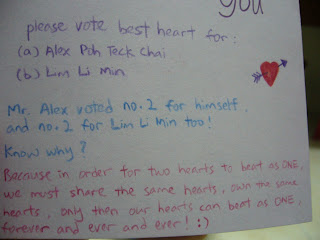 you
please vote best heart for:
(a) Alex Poh Teck Chai
(b) Lim Li Min
Mr. Alex voted no. 2 for himself.
and no. 2 for Lim Li Min too!
Know why?
Because in order for two hearts to beat as ONE,
we must share the same hearts, own the same
hearts, only then our hearts can beat as ONE,
forever and ever and ever! :)